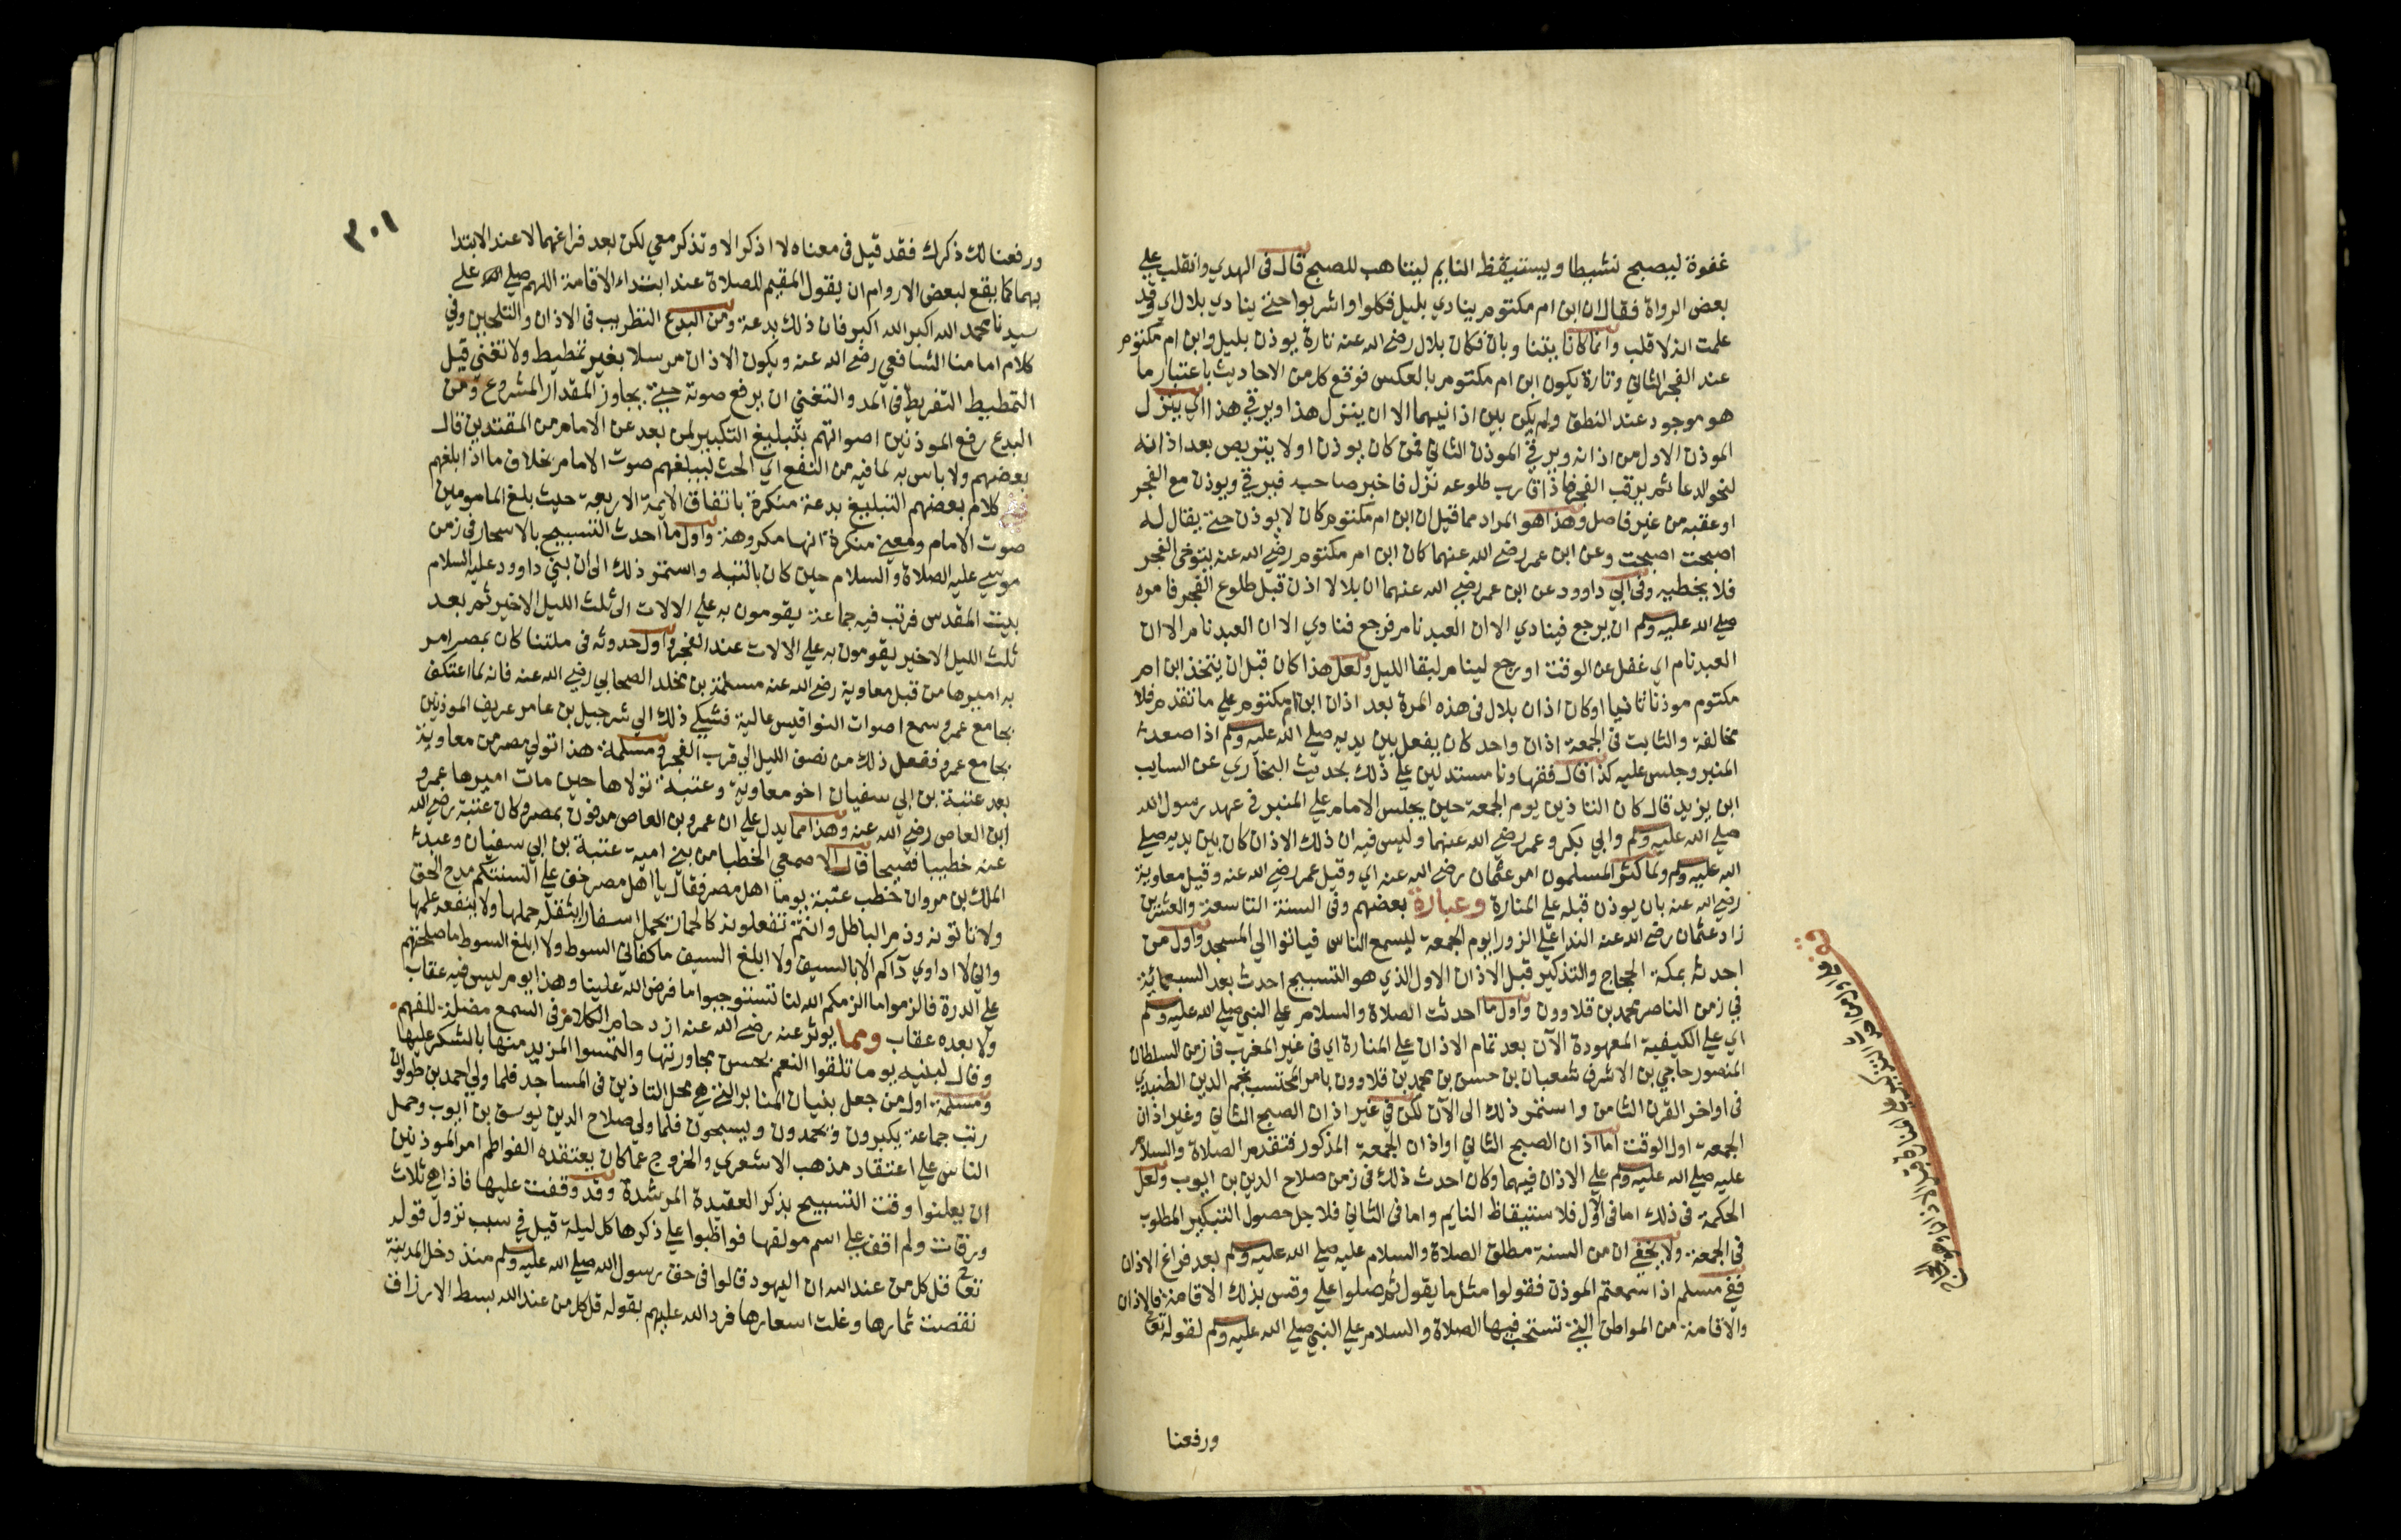 غفوة ليصبح نشيطا ويستيقظ النايم ليتاهب للصبح قال في الهدي وانقلب علي
بعض الرواة فقال ان ابن ام مكتوم ينادي بليل فكلوا واشربوا حتي ينادي بلال اي وقد
علمت انه لا قلب وانما كانا يتناوبان فكان بلال رضي الله عنه تارة يوذن بليل وابن ام مكتوم
عند الفجر الثاني وتارة يكون ابن ام مكتوم بالعكس فوقع كل من الاحاديث باعتبار ما
هو موجود عند النطق ولم يكن بين اذانيهما الا ان ينزل هذا ويرقي هذا اي ينزل
الموذن الاول من اذانه ويرقي الموذن الثاني فمن كان يوذن اولا يتربص بعد اذانه
لنحو الدعا ثم يرقب الفجر فاذا قارب طلوعه نزل فاخبر صاحبه فيرقي ويوذن مع الفجر
او عقبه من غير فاصل وهذا هو المراد مما قيل ان ابن ام مكتوم كان لا يوذن حتي يقال له
اصبحت اصبحت وعن ابن عمر رضي الله عنهما كان ابن ام مكتوم رضي الله عنه يتوخي الفجر
فلا يخطيه وفي ابي داوود عن ابن عمر رضي الله عنهما ان بلالا اذن قبل طلوع الفجر فامره
صلي الله عليه وسلم ان يرجع فينادي الا ان العبد نام فرجع فنادي الا ان العبد نام الا ان
العبد نام اي غفل عن الوقت او رجع لينام لبقا الليل ولعل هذا كان قبل ان يتخذ ابن ام
مكتوم موذنا ثانيا او كان اذان بلال في هذه المرة بعد اذان ابن ام مكتوم علي ما تقدم فلا
مخالفة والثابت في الجمعة اذان واحد كان يفعل بين يديه صلي الله عليه وسلم اذا صعد
المنبر وجلس عليه كذا قال فقهاونا مستدلين علي ذلك بحديث البخاري عن السايب
ابن يزيد قال كان التاذين يوم الجمعة حين يجلس الامام علي المنبر في عهد رسول الله
صلي الله عليه وسلم وابي بكر وعمر رضي الله عنهما وليس فيه ان ذلك الاذان كان بين يديه صلي
الله عليه وسلم ولما كثر المسلمون امر عثمان رضي الله عنه اي وقيل عمر رضي الله عنه وقيل معاوية
رضي الله عنه بان يوذن قبله علي المنارة وعبارة بعضهم وفي السنة التاسعة والعشرين
زاد عثمان رضي الله عنه الندا علي الزورا يوم الجمعة ليسمع الناس فياتوا الي المسجد واول من
احدثه بمكة الحجاج والتذكير قبل الاذان الاول الذي هو التسبيح احدث بعد السبعمائة
في زمن الناصر محمد بن قلاوون واول ما احدثت الصلاة والسلام علي النبي صلي الله عليه وسلم
اي علي الكيفية المعهودة الآن بعد تمام الاذان علي المنارة اي في غير المغرب في زمن السلطان
المنصور حاجي بن الاشرف شعبان بن حسن بن محمد بن قلاوون بامر المحتسب نجم الدين الطنبدي
في اواخر القرن الثامن واستمر ذلك الي الآن لكن في غير اذان الصبح الثاني وغير اذان
الجمعة اول الوقت اما اذان الصبح الثاني او اذان الجمعة المذكور فتقدم الصلاة والسلام
عليه صلي الله عليه وسلم علي الاذان فيهما وكان احدث ذلك في زمن صلاح الدين بن ايوب ولعل
الحكمة في ذلك اما في الاول فلاستيقاظ النايم واما في الثاني فلاجل حصول التبكير المطلوب
في الجمعة ولا يخفي ان من السنة مطلق الصلاة والسلام عليه صلي الله عليه وسلم بعد فراغ الاذان
ففي مسلم اذا سمعتم الموذن فقولوا مثل ما يقول ثم صلوا علي وقس بذلك الاقامة فالاذان
والاقامة من المواطن التي تستحب فيها الصلاة والسلام علي النبي صلي الله عليه وسلم لقوله تعا
ورفعنا
٣٠١
ورفعنا لك ذكرك فقد قيل في معناه لا اذكر الا وتذكر معي لكن بعد فراغهما لا عند الابتدا
بهما كما يقع لبعض الاروام ان يقول المقيم للصلاة عند ابتداء الاقامة اللهم صلي علي
سيدنا محمد الله اكبر الله اكبر فان ذلك بدعة ومن البدع التطريب في الاذان والتلحين وفي
كلام امامنا الشافعي رضي الله عنه ويكون الاذان مرسلا بغير تمطيط ولا تغني قيل
التمطيط التفريط في المد والتغني ان يرفع صوته حتي يجاوز المقدار المشروع ومن
البدع رفع الموذنين اصواتهم بتبليغ التكبير لمن بعد عن الامام من المقتدين قال
بعضهم ولا باس به لما فيه من النفع اي الحث ليبلغهم صوت الامام بخلاف ما اذا بلغهم
كلام بعضهم التبليغ بدعة منكرة باتفاق الايمة الاربعة حيث بلغ المامومين
صوت الامام ومعني منكرة انها مكروهة واول ما احدث التسبيح بالاسحار في زمن
موسي عليه الصلاة والسلام حين كان بالتيه واستمر ذلك الي ان بني داوود عليه السلام
بيت المقدس فرتب فيه جماعة يقومون به علي الالات الي ثلث الليل الاخير ثم بعد
ثلث الليل الاخير يقومون به علي الالات عند الفجر واول حدوثه في ملتنا كان بمصر امر
به اميرها من قبل معاوية رضي الله عنه مسلمة بن مخلد الصحابي رضي الله عنه فانه لما اعتكف
بجامع عمرو سمع اصوات النواقيس عالية فشكي ذلك الي شرحبيل بن عامر عريف الموذنين
بجامع عمرو ففعل ذلك من نصف الليل الي قرب الفجر ومسلمة هذا تولي مصر من معاوية
بعد عتبة بن ابي سفيان اخو معاوية وعتبة تولاها حين مات اميرها عمرو
ابن العاص رضي الله عنه وهذا مما يدل علي ان عمرو بن العاص مدفون بمصر وكان عتبة رضي الله
عنه خطيبا فصيحا قال الاصمعي الخطبا من بني امية عتبة بن ابي سفيان وعبد
الملك بن مروان خطب عتبة يوما اهل مصر فقال يا اهل مصر خف علي السنتكم مدح الحق
ولا تاتونه وذم الباطل وانتم تفعلونه كالحمار يحمل اسفارا يثقله حملها ولا ينفعه علمها
واني لا اداوي داكم الا بالسيف ولا ابلغ السيف ما كفاني السوط ولا ابلغ السوط ما صلحتم
علي الدرة فالزموا ما الزمكم الله لنا تستوجبوا ما فرض الله علينا وهذا يوم ليس فيه عقاب
ولا بعده عقاب ومما يوثر عنه رضي الله عنه ازدحام الكلام في السمع مضلة للفهم
وقال لبنيه يوما تلقوا النعم بحسن مجاورتها والتمسوا المزيد منها بالشكر عليها
ومسلمة اول من جعل بنيان المنابر التي هي محل التاذين في المساجد فلما ولي احمد بن طولون
رتب جماعة يكبرون ويحمدون ويسبحون فلما ولي صلاح الدين يوسف بن ايوب وحمل
الناس علي اعتقاد مذهب الاشعري والخروج عما كان يعتقده الفواطم امر الموذنين
ان يعلنوا وقت التسبيح بذكر العقيدة المرشدة وقد وقفت عليها فاذا هي ثلاث
ورقات ولم اقف علي اسم مولفها فواظبوا علي ذكرها كل ليلة قيل في سبب نزول قوله
تعالي قل كل من عند الله ان اليهود قالوا في حق رسول الله صلي الله عليه وسلم منذ دخل المدينة
نقصت ثمارها وغلت اسعارها فرد الله عليهم بقوله قل كل من عند الله يبسط الارزاق